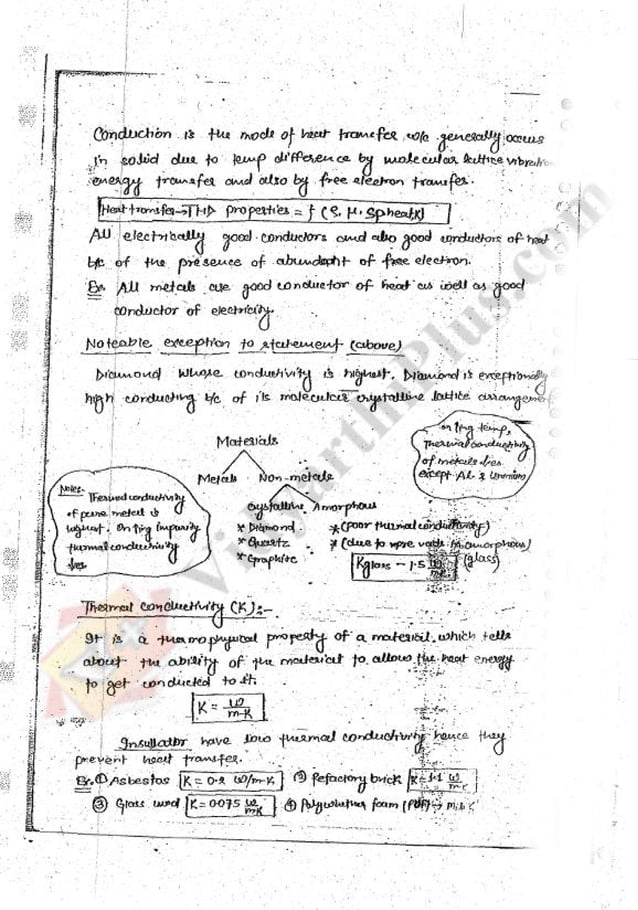 Conduction is the mode of heat transfer w/c generally occurs
in solid due to temp difference by molecular lattice vibration
energy transfer and also by free electron transfer.
Heat transfer → THD properties = f (ρ, μ, Sp heat, K)
All electrically good conductors and also good conductors of heat
b/c of the presence of abundant of free electron.
Ex. All metals are good conductor of heat as well as good
conductor of electricity.
Noteable exception to statement (above)
Diamond whose conductivity is highest. Diamond is exceptionally
high conducting b/c of its molecular crystalline lattice arrangement
on ↑ing temp,
thermal conductivity
of metals ↓es
except Al & Uranium
Materials
Metals Non-metals
Crystalline Amorphous
* Diamond
* Quartz
* Graphite
* (poor thermal conductivity)
* (due to more voids in amorphous)
(glass)
Kglass - 1.5 w/mK
Notes- Thermal conductivity
of pure metal is
highest. On ↑ing impurity
thermal conductivity
↓es
Thermal conductivity (K) :-
It is a thermophysical property of a material which tells
about the ability of the material to allow the heat energy
to get conducted to it.
K = w/m-K
Insullator have low thermal conductivity hence they
prevent heat transfer.
Ex. ① Asbestos K = 0.2 w/m-K ② Refactory brick K = 1.1 w/m-K
③ Glass wool K = 0.075 w/mK ④ Polyurethen foam (PUF) →
VidyarthiPlus.com
V+